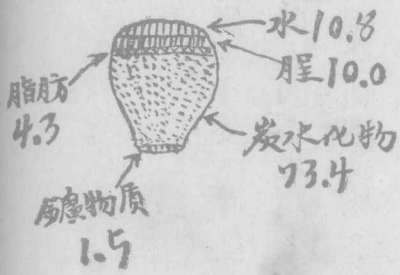 水10.8
脭10.0
脂肪
4.3
炭水化物
73.4
礦物质
1.5